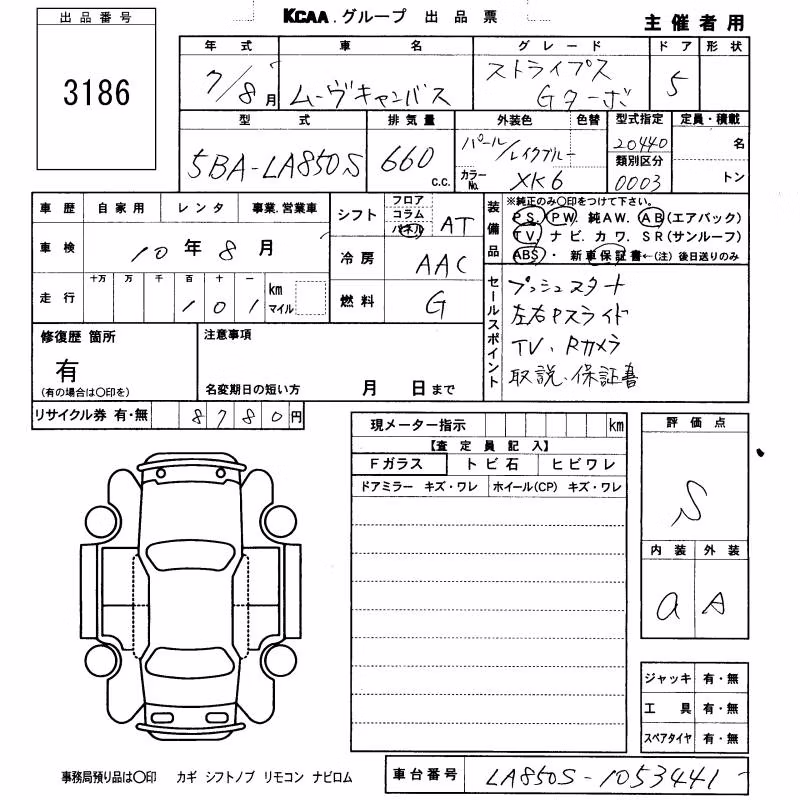 KCAA.グループ 出品票
主催者用
出品番号
3186
年式 車名 グレード ドア 形状
7/8月 ムーヴキャンバス ストライプス Gターボ 5
型式 排気量 外装色 色替 型式指定 定員・積載
5BA-LA850S 660 c.c. パール/レイクブルー 20440 名
カラーNo. XK6 類別区分 0003 トン
車歴 自家用 レンタ 事業.営業車
シフト フロア コラム パネル AT
車検 10年8月
冷房 AAC
走行 十万 万 千 百 十 一 101 km マイル
燃料 G
装備品 ※純正のみ〇印をつけて下さい。
PS. PW. 純AW. AB(エアバック)
TV ナビ. カワ. SR(サンルーフ)
ABS・ 新車保証書←(注)後日送りのみ
セールスポイント
プッシュスタート
左右Pスライド
TV、Rカメラ
取説・保証書
修復歴 箇所
有
(有の場合は〇印を)
注意事項
名変期日の短い方 月 日まで
リサイクル券 有・無 8780円
現メーター指示 km
【査定員記入】
Fガラス トビ石 ヒビワレ
ドアミラー キズ・ワレ ホイール(CP) キズ・ワレ
評価点
S
内装 外装
a A
ジャッキ 有・無
工具 有・無
スペアタイヤ 有・無
事務局預り品は〇印 カギ シフトノブ リモコン ナビロム
車台番号 LA850S-1053441